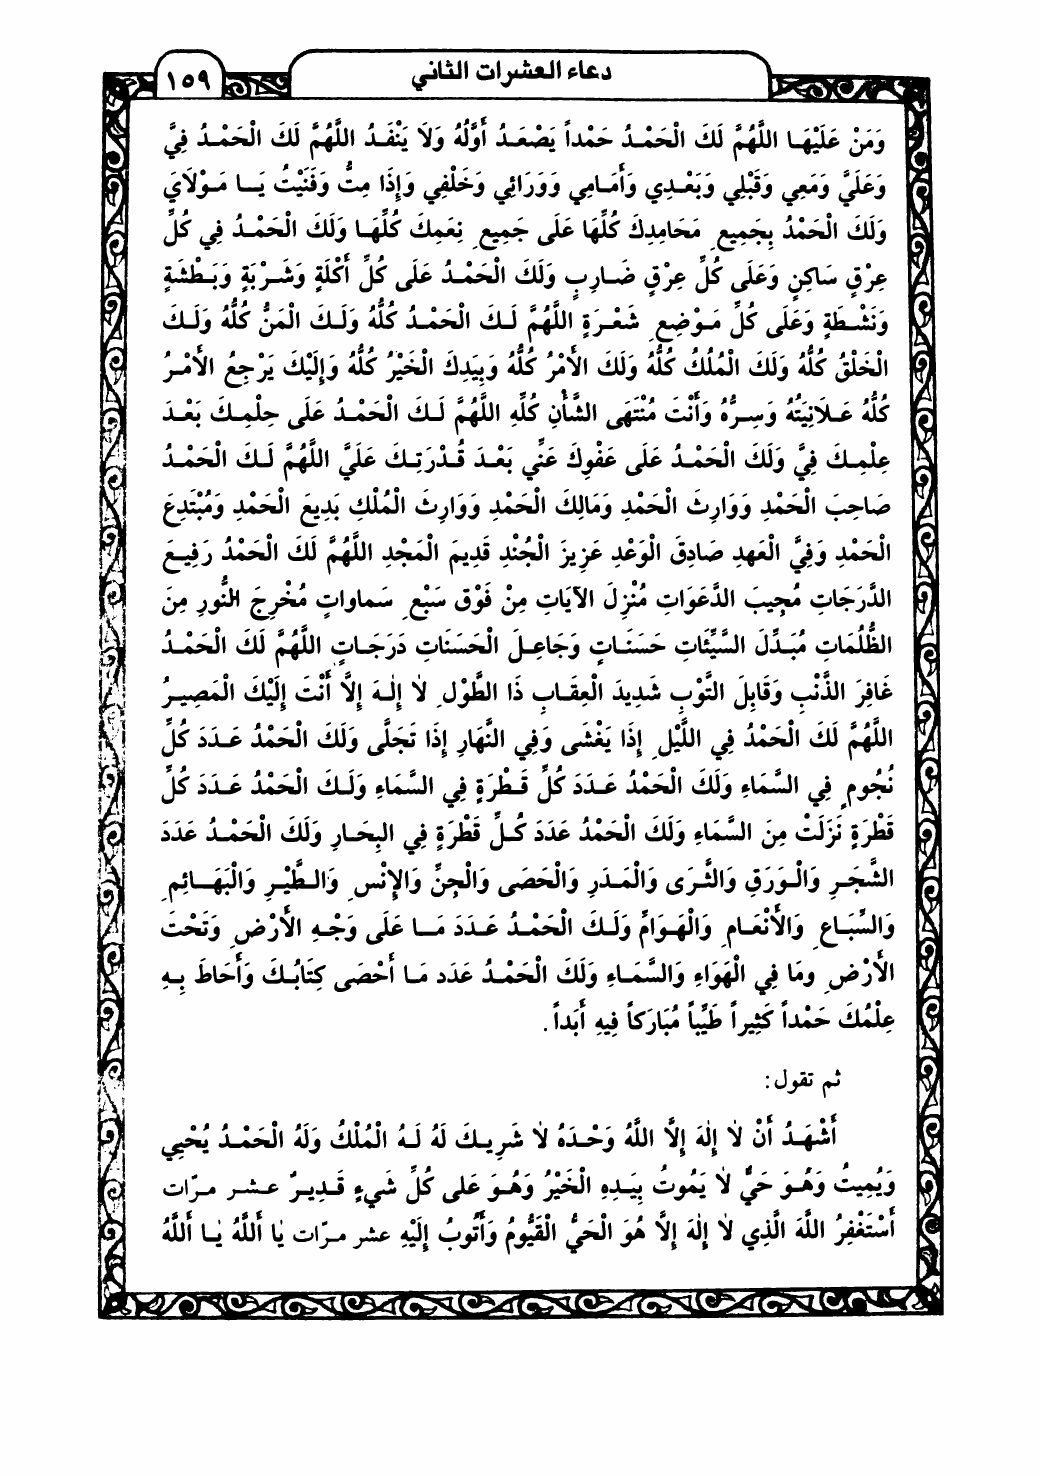 دعاء العشرات الثاني
١٥٩
وَمَنْ عَلَيْهَا اللَّهُمَّ لَكَ الْحَمْدُ حَمْداً يَصْعَدُ أَوَّلُهُ وَلاَ يَنْفَدُ اللَّهُمَّ لَكَ الْحَمْدُ فِيَّ
وَعَلَيَّ وَمَعِي وَقَبْلِي وَبَعْدِي وَأَمَامِي وَوَرَائِي وَخَلْفِي وَإِذَا مِتُّ وَفَنَيْتُ يَا مَوْلاَيَ
وَلَكَ الْحَمْدُ بِجَمِيعِ مَحَامِدِكَ كُلِّهَا عَلَى جَمِيعِ نِعَمِكَ كُلِّهَا وَلَكَ الْحَمْدُ فِي كُلِّ
عِرْقٍ سَاكِنٍ وَعَلَى كُلِّ عِرْقٍ ضَارِبٍ وَلَكَ الْحَمْدُ عَلَى كُلِّ أَكْلَةٍ وَشَرْبَةٍ وَبَطْشَةٍ
وَنَشْطَةٍ وَعَلَى كُلِّ مَوْضِعِ شَعْرَةٍ اللَّهُمَّ لَكَ الْحَمْدُ كُلُّهُ وَلَكَ الْمَنُّ كُلُّهُ وَلَكَ
الْخَلْقُ كُلُّهُ وَلَكَ الْمُلْكُ كُلُّهُ وَلَكَ الأَمْرُ كُلُّهُ وَبِيَدِكَ الْخَيْرُ كُلُّهُ وَإِلَيْكَ يَرْجِعُ الأَمْرُ
كُلُّهُ عَلاَنِيَتُهُ وَسِرُّهُ وَأَنْتَ مُنْتَهَى الشَّأْنِ كُلِّهِ اللَّهُمَّ لَكَ الْحَمْدُ عَلَى حِلْمِكَ بَعْدَ
عِلْمِكَ فِيَّ وَلَكَ الْحَمْدُ عَلَى عَفْوِكَ عَنِّي بَعْدَ قُدْرَتِكَ عَلَيَّ اللَّهُمَّ لَكَ الْحَمْدُ
صَاحِبَ الْحَمْدِ وَوَارِثَ الْحَمْدِ وَمَالِكَ الْحَمْدِ وَوَارِثَ الْمُلْكِ بَدِيعَ الْحَمْدِ وَمُبْتَدِعَ
الْحَمْدِ وَفِيَّ الْعَهدِ صَادِقَ الْوَعْدِ عَزِيزَ الْجُنْدِ قَدِيمَ الْمَجْدِ اللَّهُمَّ لَكَ الْحَمْدُ رَفِيعَ
الدَّرَجَاتِ مُجِيبَ الدَّعَوَاتِ مُنْزِلَ الآيَاتِ مِنْ فَوْقِ سَبْعِ سَماواتٍ مُخْرِجَ النُّورِ مِنَ
الظُّلُمَاتِ مُبَدِّلَ السَّيِّئَاتِ حَسَنَاتٍ وَجَاعِلَ الْحَسَنَاتِ دَرَجَاتٍ اللَّهُمَّ لَكَ الْحَمْدُ
غَافِرَ الذَّنْبِ وَقَابِلَ التَّوْبِ شَدِيدَ الْعِقَابِ ذَا الطَّوْلِ لاَ إِلٰهَ إِلاَّ أَنْتَ إِلَيْكَ الْمَصِيرُ
اللَّهُمَّ لَكَ الْحَمْدُ فِي اللَّيْلِ إِذَا يَغْشَى وَفِي النَّهَارِ إِذَا تَجَلَّى وَلَكَ الْحَمْدُ عَدَدَ كُلِّ
نُجُومٍ فِي السَّمَاءِ وَلَكَ الْحَمْدُ عَدَدَ كُلِّ قَطْرَةٍ فِي السَّمَاءِ وَلَكَ الْحَمْدُ عَدَدَ كُلِّ
قَطْرَةٍ نَزَلَتْ مِنَ السَّمَاءِ وَلَكَ الْحَمْدُ عَدَدَ كُلِّ قَطْرَةٍ فِي البِحَارِ وَلَكَ الْحَمْدُ عَدَدَ
الشَّجَرِ وَالْوَرَقِ وَالثَّرَى وَالْمَدَرِ وَالْحَصَى وَالْجِنِّ وَالإِنْسِ وَالطَّيْرِ وَالْبَهَائِمِ
وَالسِّبَاعِ وَالأَنْعَامِ وَالْهَوَامِّ وَلَكَ الْحَمْدُ عَدَدَ مَا عَلَى وَجْهِ الأَرْضِ وَتَحْتَ
الأَرْضِ ومَا فِي الْهَوَاءِ وَالسَّمَاءِ وَلَكَ الْحَمْدُ عَدَد مَا أَحْصَى كِتَابُكَ وَأَحَاطَ بِهِ
عِلْمُكَ حَمْداً كَثِيراً طَيِّباً مُبَارَكاً فِيهِ أَبَداً.
ثم تقول:
أَشْهَدُ أَنْ لاَ إِلٰهَ إِلاَّ اللَّهُ وَحْدَهُ لاَ شَرِيكَ لَهُ لَهُ الْمُلْكُ وَلَهُ الْحَمْدُ يُحْيِي
وَيُمِيتُ وَهُوَ حَيٌّ لاَ يَمُوتُ بِيَدِهِ الْخَيْرُ وَهُوَ عَلى كُلِّ شَيءٍ قَدِيرٌ عشر مرّات
أَسْتَغْفِرُ اللَّهَ الَّذِي لاَ إِلٰهَ إِلاَّ هُوَ الْحَيُّ الْقَيُّومُ وَأَتُوبُ إِلَيْهِ عشر مرّات يَا أَللَّهُ يَا أَللَّهُ